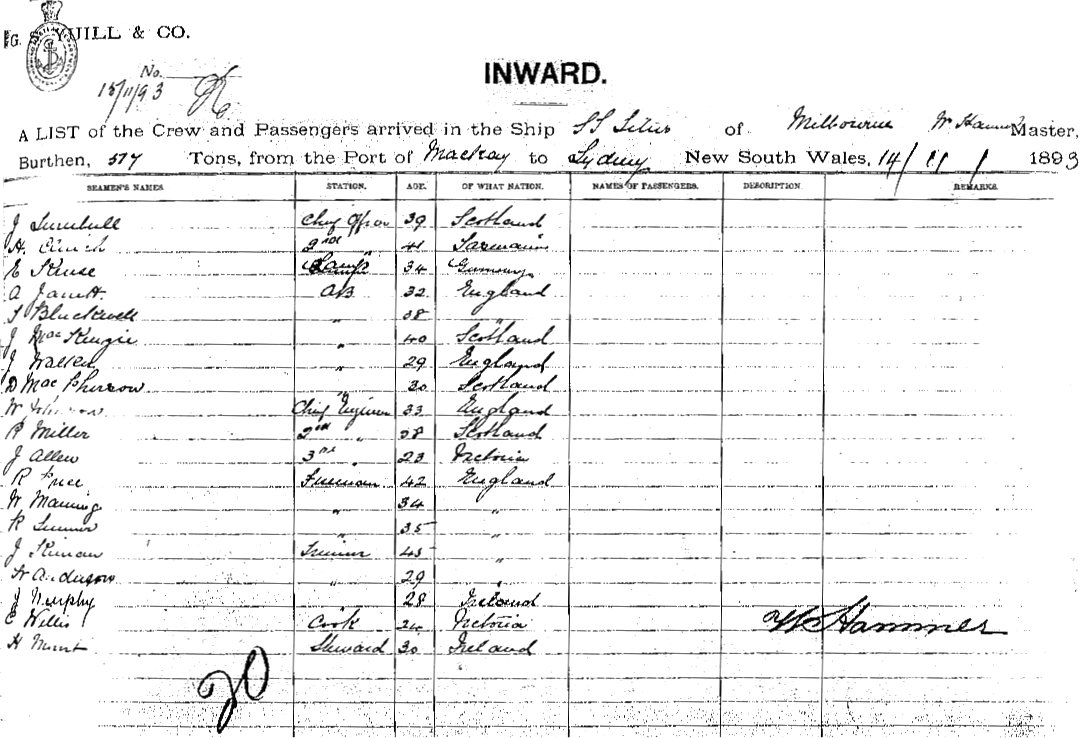 G. S. YUILL & CO.
No.
15/11/93
INWARD.
A LIST of the Crew and Passengers arrived in the Ship SS of Melbourne W Hammer Master,
Burthen, 577 Tons, from the Port of Mackay to Sydney New South Wales, 14/11/1893
SEAMEN'S NAMES. STATION. AGE. OF WHAT NATION. NAMES OF PASSENGERS. DESCRIPTION. REMARKS.
J Turnbull Chief Officer 39 Scotland
H. 2nd " 41 Tasmania
E Kruse Lamps 34 Germany
A Jarrett AB 32 England
Blackwell " 38 "
J MacKenzie " 40 Scotland
J Walker " 29 England
D MacPherson " 30 Scotland
W Johnson Chief Engineer 33 England
R Miller 2nd " 38 Scotland
J Allen 3rd " 23 Victoria
R Price Fireman 42 England
W Manning " 34 "
R " 35 "
J Trimmer "
W Anderson " 29 "
J Murphy 28 Ireland
E Willis Cook Victoria
H Steward 30 Ireland
W Hammer
20